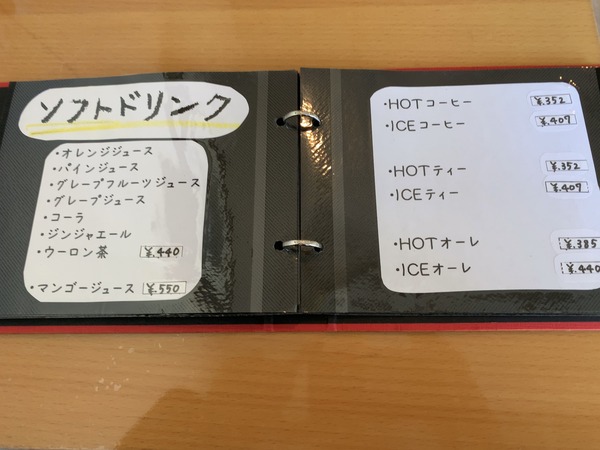 ソフトドリンク
・オレンジジュース
・パインジュース
・グレープフルーツジュース
・グレープジュース
・コーラ
・ジンジャエール
・ウーロン茶 ¥.440
・マンゴージュース ¥.550
・HOTコーヒー ¥.352
・ICEコーヒー ¥.407
・HOTティー ¥.352
・ICEティー ¥.407
・HOTオーレ ¥.385
・ICEオーレ ¥.440